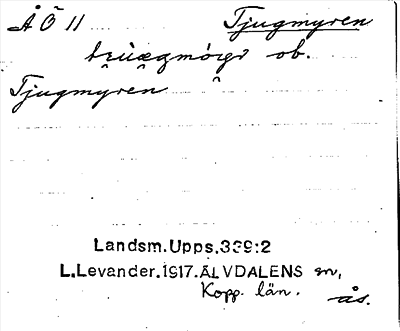 ÅÖ 11 Tjugmyren
ob.
Tjugmyren
Landsm.Upps.339:2
L.Levander.1917.ÄLVDALENS sn,
Kopp. län.
ås.